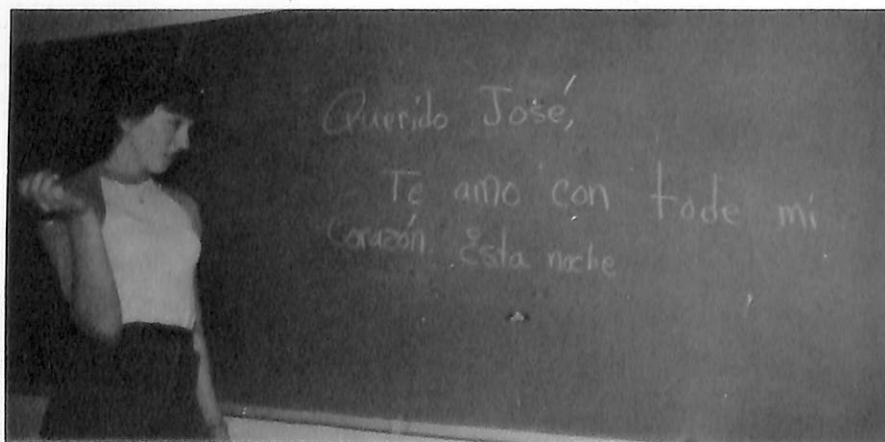 Querido José,
Te amo con tode mi
Corazón. Esta noche